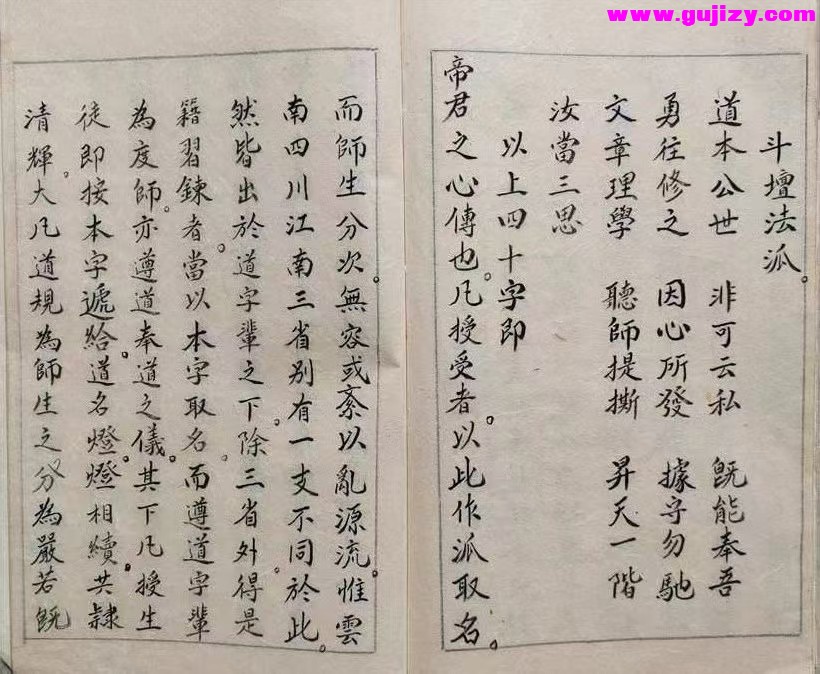 www.gujizy.com
斗壇法派。
道本公世 非可云私 既能奉吾
勇往修之 因心所發 據守勿馳
文章理學 聽師提撕 昇天一階
汝當三思
以上四十字即
帝君之心傳也。凡授受者。以此作派取名。
而師生分次。無容或紊以亂源流。惟雲
南四川江南三省別有一支不同於此。
然皆出於道字輩之下。除三省外得是
籍習鍊者。當以本字取名。而遵道字輩
為度師。亦遵道奉道之儀。其下凡授生
徒即按本字遞給。道名燈燈相續。共隸
清輝。大凡道規為師生之分為嚴若既